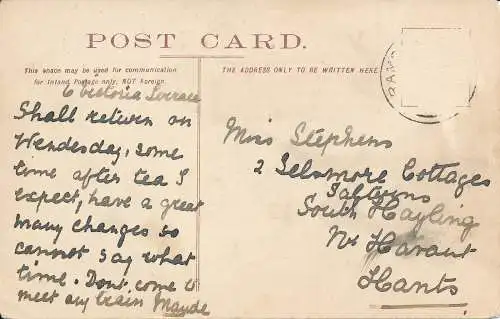 POST CARD.
This space may be used for communication
for Inland Postage only, NOT Foreign.
THE ADDRESS ONLY TO BE WRITTEN HERE
6 Victoria Terrace
Shall return on
Wendesday, some
time after tea I
expect, have a great
many changes so
cannot say what
time. Dont come to
meet any train Maude
Miss Stephens
2 Selsmore Cottages
South Hayling
Nr Havant
Hants